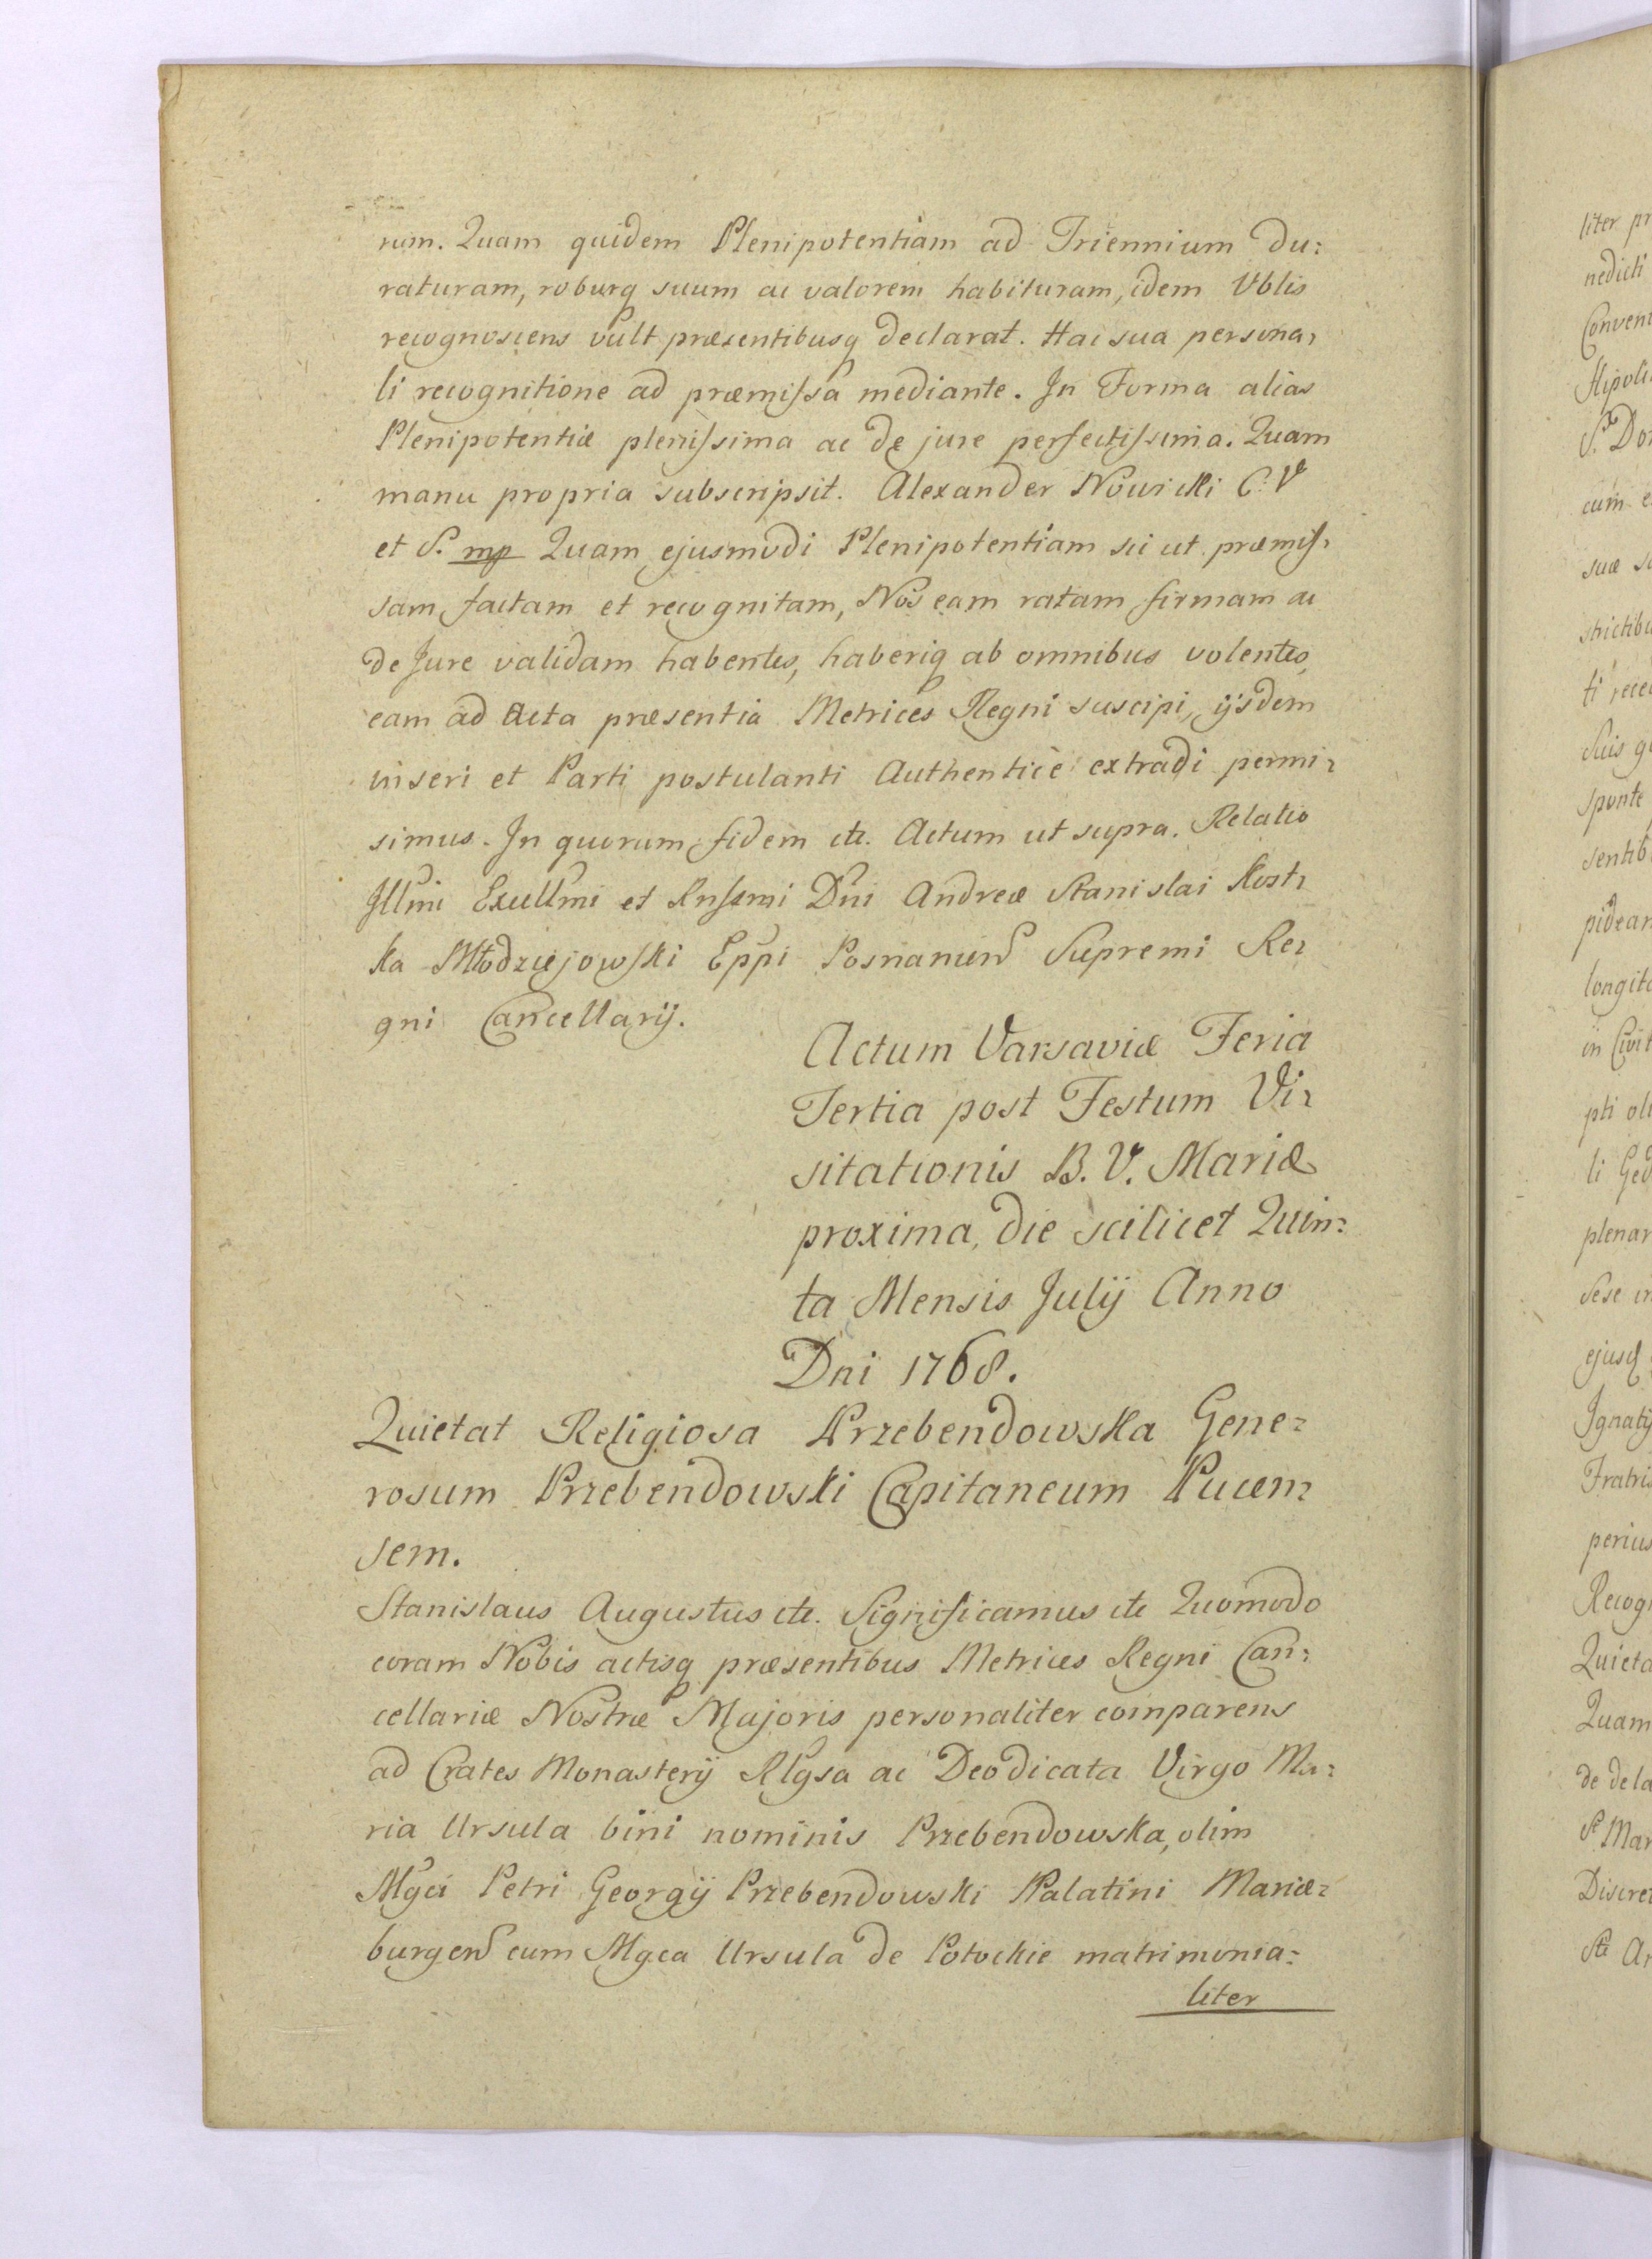 rum. Quam quidem Plenipotentiam ad Triennium du:
raturam, roburq suum ac valorem habituram, idem Nblis
recognoscens vult præsentibusq declarat. Hac sua persona:
li recognitione ad præmissa mediante. In Forma alias
Plenipotentiæ plenissima ac de jure perfectissima. Quam
manu propria subscripsit. Alexander Nowicki C. V
et S. mp Quam ejusmodi Plenipotentiam sic ut præmis:
sam factam et recognitam, Nos eam ratam firmam ac
de Jure validam habentes, haberiq ab omnibus volentes,
eam ad Acta præsentia Metrices Regni suscipi, ijsdem
inseri et Parti postulanti Authenticè extradi permi:
simus. In quorum fidem etc. Actum ut supra. Relatio
Illmi Excllmi et Rnssmi Dni Andreæ Stanislai Kost:
ka Młodziejowski Eppi Posnanien Supremi Re:
gni Cancellarij.
Actum Varsaviæ Feria
Tertia post Festum Vi:
sitationis B. V. Mariæ
proxima, die scilicet Quin:
ta Mensis Julij Anno
Dni 1768.
Quietat Religiosa Przebendowska Gene:
rosum Przebendowski Capitaneum Pucen:
sem.
Stanislaus Augustus etc. Significamus etc Quomodo
coram Nobis actisq præsentibus Metrices Regni Can:
cellariæ Nostræ Majoris personaliter comparens
ad Crates Monasterij Rlgsa ac Deodicata Virgo Ma:
ria Ursula bini nominis Przebendowska, olim
Mgci Petri Georgij Przebendowski Palatini Mariæ:
burgen cum Mgca Ursula de Potockie matrimonia:
liter